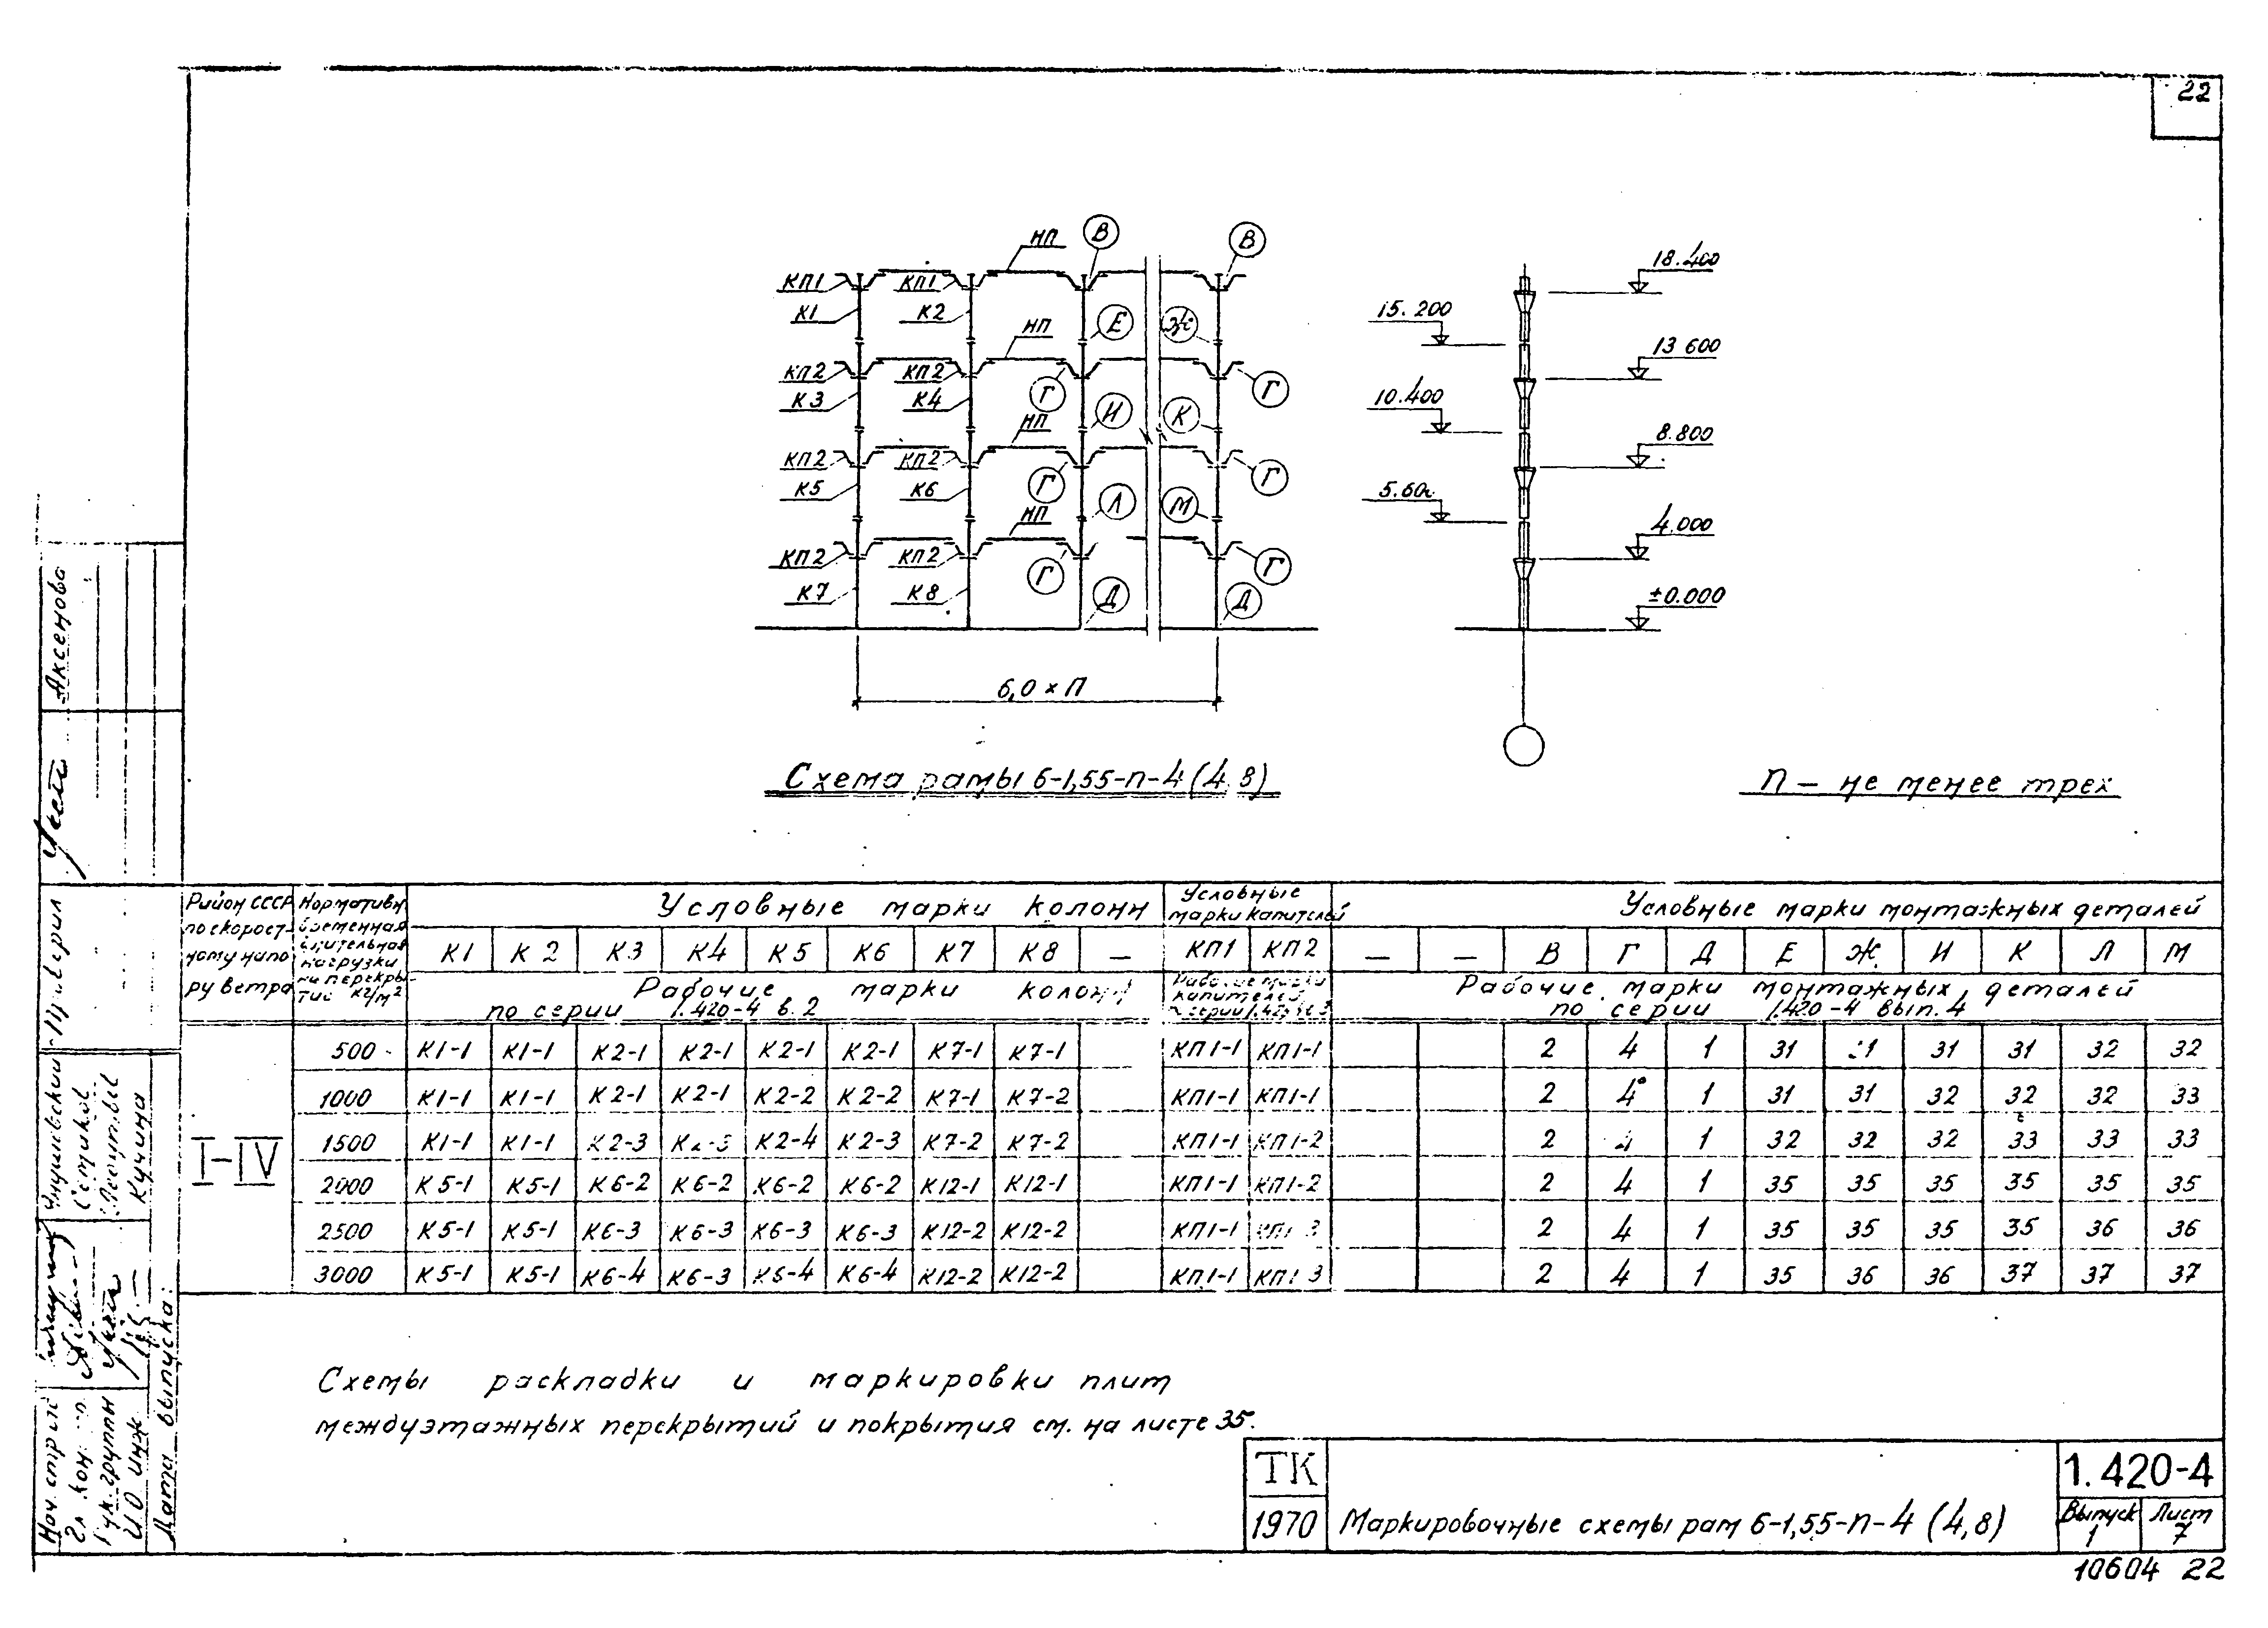 22
НП В В
КП1 КП1
К1 К2 Е Ж
НП
КП2 КП2 Г Г
К3 К4 И К
НП
КП2 КП2 Г Г
К5 К6 Л М
НП
КП2 КП2 Г Г
К7 К8 Д Д
6,0 × П
18.400
15.200
13 600
10.400
8.800
4.000
±0.000
Схема рамы 6-1,55-п-4 (4,8)
п — не менее трех
Район СССР по скоростному напору ветра
Нормативн временная длительная нагрузки на перекрытие кг/м²
Условные марки колонн
Условные марки капителей
Условные марки монтажных деталей
К1 К2 К3 К4 К5 К6 К7 К8 — КП1 КП2 — — В Г Д Е Ж И К Л М
Рабочие марки колонн
по серии 1.420-4 в.2
Рабочие марки капителей
Рабочие марки монтажных деталей
по серии 1.420-4 вып. 4
I-IV
500 К1-1 К1-1 К2-1 К2-1 К2-1 К2-1 К7-1 К7-1 КП1-1 КП1-1 2 4 1 31 31 31 31 32 32
1000 К1-1 К1-1 К2-1 К2-1 К2-2 К2-2 К7-1 К7-2 КП1-1 КП1-1 2 4 1 31 31 32 32 32 33
1500 К1-1 К1-1 К2-3 К2-3 К2-4 К2-3 К7-2 К7-2 КП1-1 КП1-2 2 4 1 32 32 32 33 33 33
2000 К5-1 К5-1 К6-2 К6-2 К6-2 К6-2 К12-1 К12-1 КП1-1 КП1-2 2 4 1 35 35 35 35 35 35
2500 К5-1 К5-1 К6-3 К6-3 К6-3 К6-3 К12-2 К12-2 КП1-1 КП1 3 2 4 1 35 35 35 35 36 36
3000 К5-1 К5-1 К6-4 К6-3 К6-4 К6-4 К12-2 К12-2 КП1-1 КП1 3 2 4 1 35 36 36 37 37 37
Схемы раскладки и маркировки плит
междуэтажных перекрытий и покрытия см. на листе 35.
ТК
1970
Маркировочные схемы рам 6-1,55-п-4 (4,8)
1.420-4
Выпуск
1
Лист
7
10604 22
Аксенова
Кучина
Дата выпуска: